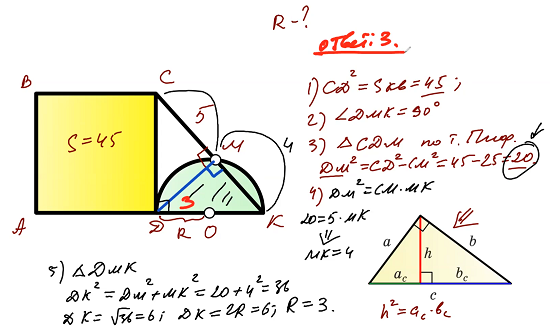 R - ?
Ответ: 3.
B
C
5
S = 45
M
4
3
A
D
R
O
K
1) CD² = Sкв = 45;
2) ∠DMK = 90°
3) △CDM по т. Пиф.
DM² = CD² - CM² = 45 - 25 = 20
4) DM² = CM · MK
20 = 5 · MK
⇓
MK = 4
a
h
b
a_c
b_c
c
h² = a_c · b_c
5) △DMK
DK² = DM² + MK² = 20 + 4² = 36
DK = √36 = 6; DK = 2R = 6; R = 3.